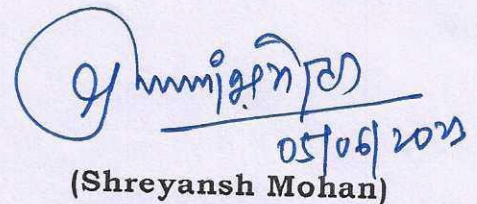 05/06/2023
(Shreyansh Mohan)